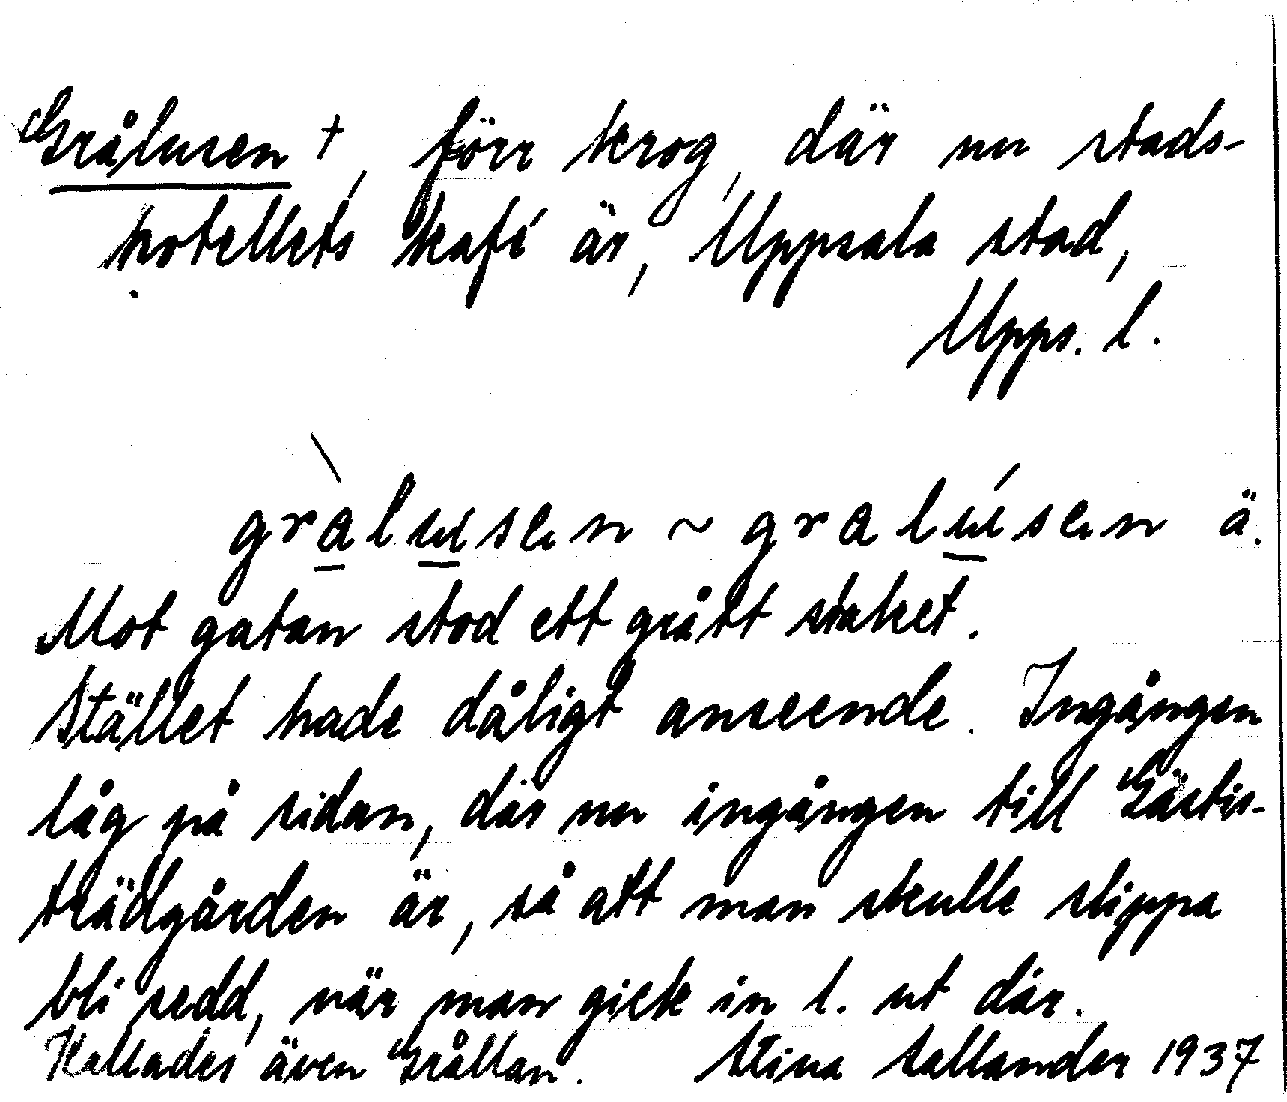 Grålusen †, förr krog, där nu stads-
hotellets kafé är, Uppsala stad,
Upps. l.
gràlusen ~ gralúsen ä.
Mot gatan stod ett grått staket.
Stället hade dåligt anseende. Ingången
låg på sidan, där nu ingången till Gästis-
trädgården är, så att man skulle slippa
bli sedd, när man gick in l. ut där.
Kallades även Grållan. Stina Sallander 1937